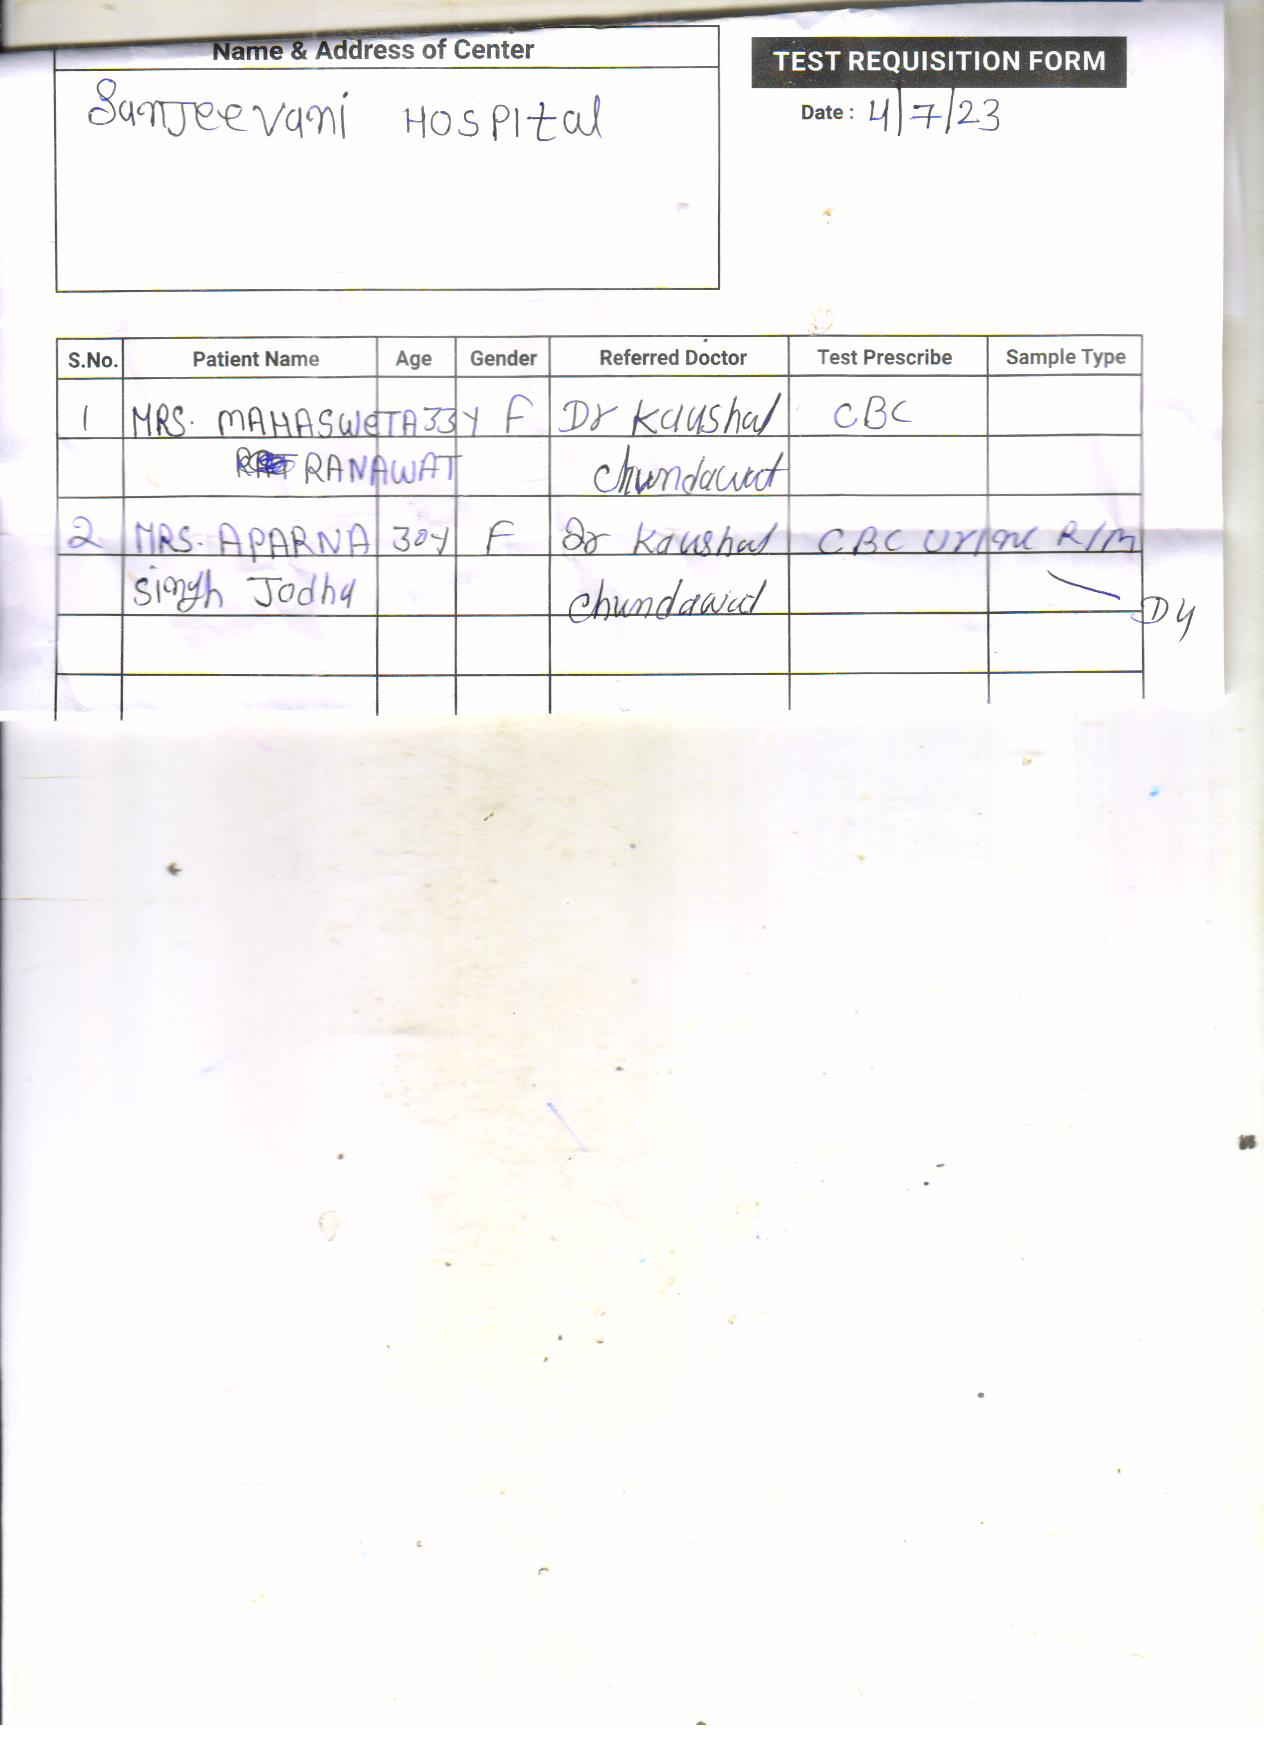 Name & Address of Center
TEST REQUISITION FORM
Sanjeevani HOSPItal
Date : 4/7/23
S.No. Patient Name Age Gender Referred Doctor Test Prescribe Sample Type
1 MRS. MAHASWETA 33Y F Dr Kaushal CBC
RANAWAT Chundawat
2 MRS. APARNA 30Y F Dr Kaushal CBC Urine R/M
Singh Jodha Chundawat